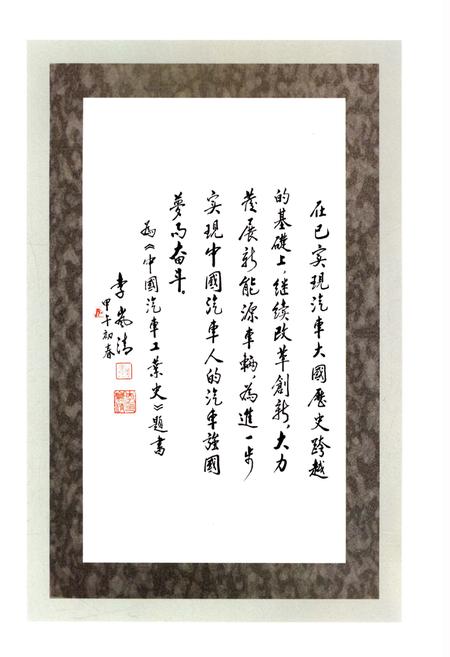 在已实现汽車大國歷史跨越
的基礎上，继续改革創新，大力
發展新能源車輛，為進一步
实現中國汽車人的汽車強國
夢而奋斗。
為《中國汽車工業史》題書
李嵐清
甲午初春